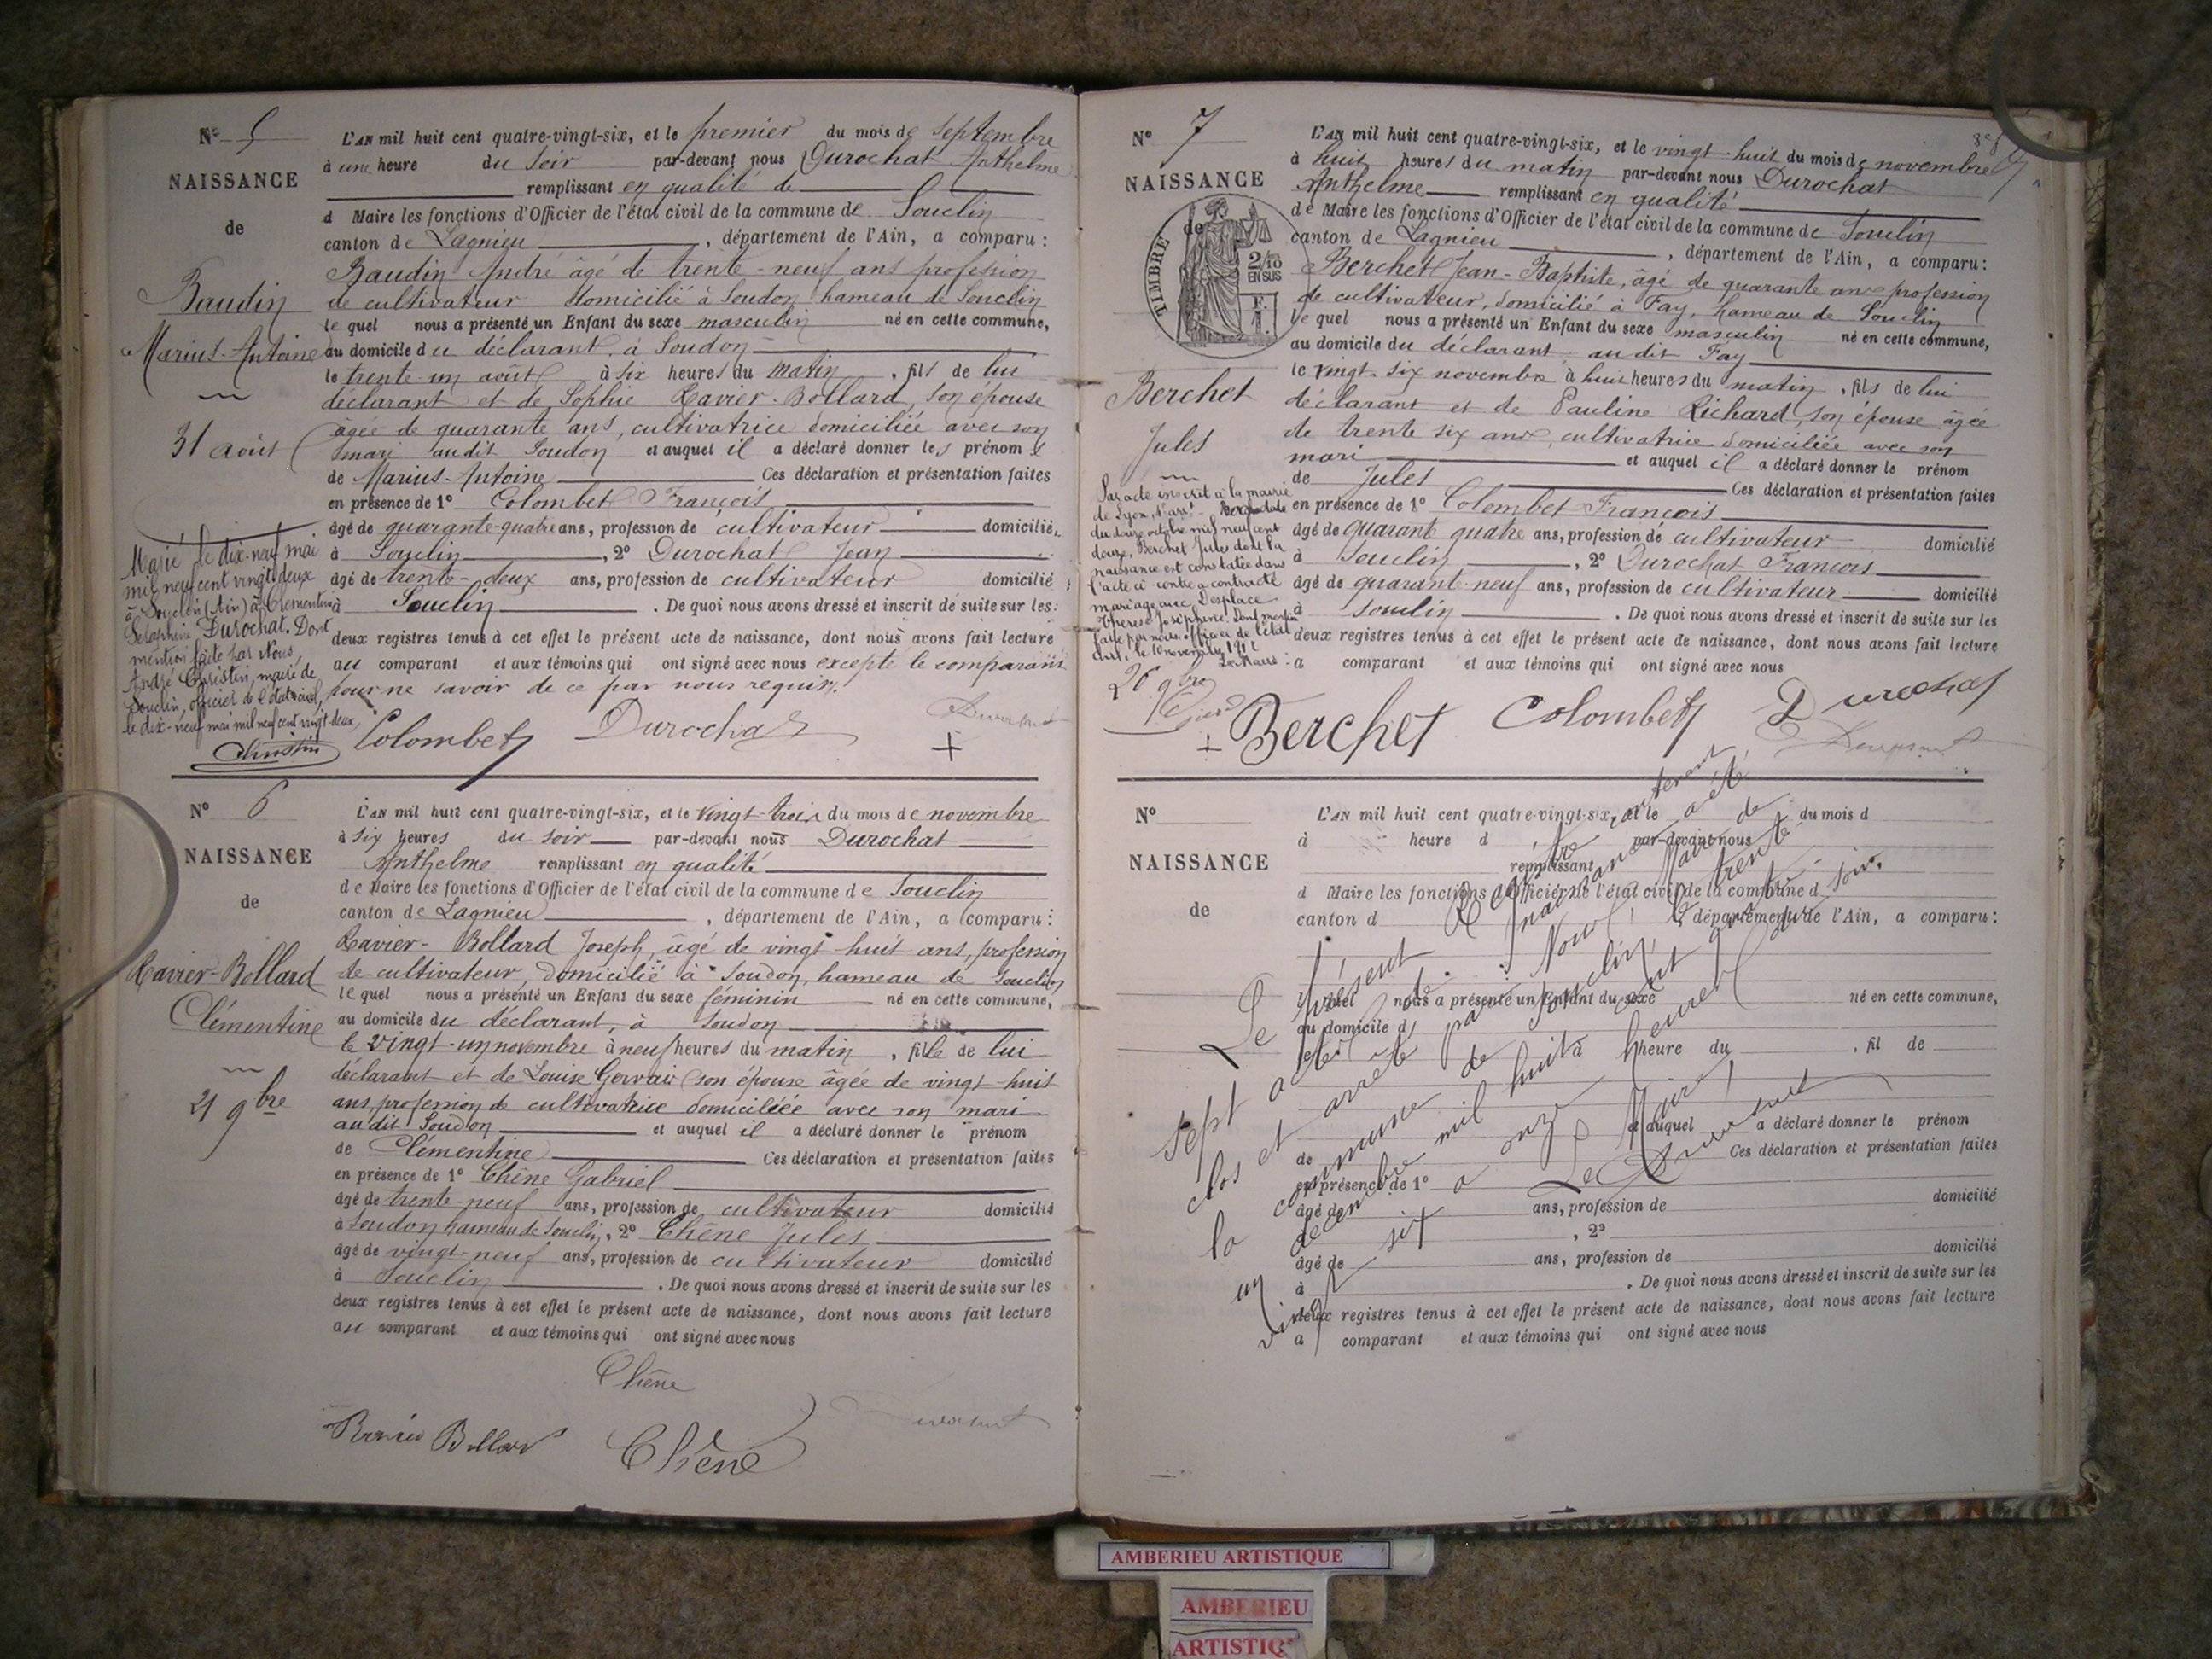 N° 5
NAISSANCE
de
Baudin
Marius-Antoine
31 août
Marié le dix-neuf mai
mil neuf cent vingt deux
à Souclin (Ain) à Clementine
Séraphine Durochat. Dont
mention faite par Nous,
André Christin, maire de
Souclin, officier de l'état civil,
le dix-neuf mai mil neuf cent vingt deux,
Christin
L'AN mil huit cent quatre-vingt-six, et le premier du mois de Septembre
à une heure du Soir par-devant nous Durochat Anthelme
remplissant en qualité de
d Maire les fonctions d'Officier de l'état civil de la commune de Souclin
canton de Lagnieu, département de l'Ain, a comparu :
Baudin André âgé de trente-neuf ans profession
de cultivateur domicilié à Soudon hameau de Souclin
le quel nous a présenté un Enfant du sexe masculin né en cette commune,
au domicile du déclarant, à Soudon
le trente-un août à six heures du matin, fils de lui
déclarant et de Sophie Ravier-Bollard, son épouse
agée de quarante ans, cultivatrice domiciliée avec son
mari audit Soudon et auquel il a déclaré donner les prénom s
de Marius-Antoine Ces déclaration et présentation faites
en présence de 1° Colombet François
âgé de quarante-quatre ans, profession de cultivateur domicilié
à Souclin, 2° Durochat Jean
âgé de trente-deux ans, profession de cultivateur domicilié
à Souclin. De quoi nous avons dressé et inscrit de suite sur les
deux registres tenus à cet effet le présent acte de naissance, dont nous avons fait lecture
au comparant et aux témoins qui ont signé avec nous excepté le comparant
pour ne savoir de ce par nous requis.
Colombet Durochat
+
N° 6
NAISSANCE
de
Ravier-Bollard
Clémentine
21 9bre
L'AN mil huit cent quatre-vingt-six, et le vingt-trois du mois de novembre
à six heures du soir par-devant nous Durochat
Anthelme remplissant en qualité
de Maire les fonctions d'Officier de l'état civil de la commune de Souclin
canton de Lagnieu, département de l'Ain, a comparu :
Ravier-Bollard Joseph, âgé de vingt-huit ans, profession
de cultivateur, domicilié à Soudon, hameau de Souclin
le quel nous a présenté un Enfant du sexe féminin né en cette commune,
au domicile du déclarant, à Soudon
le vingt-un novembre à neuf heures du matin, fille de lui
déclarant et de Louise Gervais son épouse âgée de vingt-huit
ans, profession de cultivatrice domiciliée avec son mari
audit Soudon et auquel il a déclaré donner le prénom
de Clémentine Ces déclaration et présentation faites
en présence de 1° Chêne Gabriel
âgé de trente-neuf ans, profession de cultivateur domicilié
à Soudon hameau de Souclin, 2° Chêne Jules
âgé de vingt-neuf ans, profession de cultivateur domicilié
à Souclin. De quoi nous avons dressé et inscrit de suite sur les
deux registres tenus à cet effet le présent acte de naissance, dont nous avons fait lecture
au comparant et aux témoins qui ont signé avec nous
Chêne
Ravier Bollard Chêne
N° 7
NAISSANCE
de
TIMBRE
2/10
EN SUS
Berchet
Jules
Par acte inscrit à la mairie
de Lyon,
du douze octobre mil neuf cent
douze, Berchet Jules dont la
naissance est constatée dans
l'acte ci-contre a contracté
mariage avec Desplace
Thérèse Joséphine. Dont mention
faite par nous officier de l'état
civil, le 10 novembre 1912
Le Maire :
26 9bre
L'AN mil huit cent quatre-vingt-six, et le vingt-huit du mois de novembre
à huit heures du matin par-devant nous Durochat
Anthelme remplissant en qualité
de Maire les fonctions d'Officier de l'état civil de la commune de Souclin
canton de Lagnieu, département de l'Ain, a comparu :
Berchet Jean-Baptiste, âgé de quarante ans profession
de cultivateur, domicilié à Fay, hameau de Souclin
le quel nous a présenté un Enfant du sexe masculin né en cette commune,
au domicile du déclarant, audit Fay
le vingt-six novembre à huit heures du matin, fils de lui
déclarant et de Pauline Richard, son épouse âgée
de trente six ans, cultivatrice domiciliée avec son
mari et auquel il a déclaré donner le prénom
de Jules Ces déclaration et présentation faites
en présence de 1° Colombet François
âgé de quarante quatre ans, profession de cultivateur domicilié
à Souclin, 2° Durochat François
âgé de quarante-neuf ans, profession de cultivateur domicilié
à Souclin. De quoi nous avons dressé et inscrit de suite sur les
deux registres tenus à cet effet le présent acte de naissance, dont nous avons fait lecture
a comparant et aux témoins qui ont signé avec nous
+ Berchet Colombet Durochat
N°
NAISSANCE
de
L'AN mil huit cent quatre-vingt-six, et le du mois d
à heure d par-devant nous
remplissant
d Maire les fonctions d'Officier de l'état civil de la commune d
canton d, département de l'Ain, a comparu :
quel nous a présenté un Enfant du sexe né en cette commune,
au domicile d
le à heure du, fil de
et auquel a déclaré donner le prénom
de Ces déclaration et présentation faites
en présence de 1°
âgé de ans, profession de domicilié
, 2°
âgé de ans, profession de domicilié
à. De quoi nous avons dressé et inscrit de suite sur les
deux registres tenus à cet effet le présent acte de naissance, dont nous avons fait lecture
a comparant et aux témoins qui ont signé avec nous
Le présent Registre contenant
sept actes de naissance a été
clos et arrêté par Nous, Maire de
la commune de Souclin, le trente
un décembre mil huit cent quatre-
vingt six à onze heures du soir.
Le Maire,
AMBERIEU ARTISTIQUE
AMBERIEU
ARTISTIQ